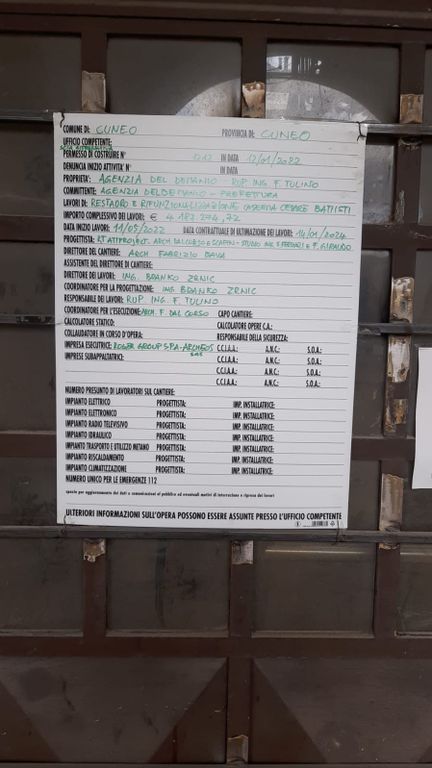 COMUNE DI: CUNEO PROVINCIA DI: CUNEO
UFFICIO COMPETENTE:
SCIA ALTERNATIVA
PERMESSO DI COSTRUIRE N° 012 IN DATA 12/01/2022
DENUNCIA INIZIO ATTIVITA' N° IN DATA
PROPRIETA': AGENZIA DEL DEMANIO - RUP ING. F. TULINO
COMMITTENTE: AGENZIA DEL DEMANIO - PREFETTURA
LAVORI DI: RESTAURO E RIFUNZIONALIZZAZIONE CASERMA CESARE BATTISTI
IMPORTO COMPLESSIVO DEI LAVORI: € 4.182.274,72
DATA INIZIO LAVORI: 11/05/2022 DATA CONTRATTUALE DI ULTIMAZIONE DEI LAVORI: 14/01/2024
PROGETTISTA: RT ATIPROJECT - ARCH DAL CORSO E SCAPIN - STUDIO ING S. FERRARI E F. GIRAUDO
DIRETTORE DEL CANTIERE: ARCH FABRIZIO DAVA
ASSISTENTE DEL DIRETTORE DI CANTIERE:
DIRETTORE DEI LAVORI: ING. BRANKO ZRNIC
COORDINATORE PER LA PROGETTAZIONE: ING BRANKO ZRNIC
RESPONSABILE DEI LAVORI: RUP. ING. F. TULINO
COORDINATORE PER L'ESECUZIONE: ARCH. F. DAL CORSO CAPO CANTIERE:
CALCOLATORE STATICO: CALCOLATORE OPERE C.A.:
COLLAUDATORE IN CORSO D'OPERA: RESPONSABILE DELLA SICUREZZA:
IMPRESA ESECUTRICE: ROGER GROUP SPA - ARCHEOS SAS C.C.I.A.A.: A.N.C.: S.O.A.:
IMPRESE SUBAPPALTATRICI: C.C.I.A.A.: A.N.C.: S.O.A.:
C.C.I.A.A.: A.N.C.: S.O.A.:
C.C.I.A.A.: A.N.C.: S.O.A.:
NUMERO PRESUNTO DI LAVORATORI SUL CANTIERE:
IMPIANTO ELETTRICO PROGETTISTA: IMP. INSTALLATRICE:
IMPIANTO ELETTRONICO PROGETTISTA: IMP. INSTALLATRICE:
IMPIANTO RADIO TELEVISIVO PROGETTISTA: IMP. INSTALLATRICE:
IMPIANTO IDRAULICO PROGETTISTA: IMP. INSTALLATRICE:
IMPIANTO TRASPORTO E UTILIZZO METANO PROGETTISTA: IMP. INSTALLATRICE:
IMPIANTO RISCALDAMENTO PROGETTISTA: IMP. INSTALLATRICE:
IMPIANTO CLIMATIZZAZIONE PROGETTISTA: IMP. INSTALLATRICE:
NUMERO UNICO PER LE EMERGENZE 112
spazio per aggiornamento dei dati o comunicazioni al pubblico ed eventuali motivi di interruzione o ripresa dei lavori
ULTERIORI INFORMAZIONI SULL'OPERA POSSONO ESSERE ASSUNTE PRESSO L'UFFICIO COMPETENTE